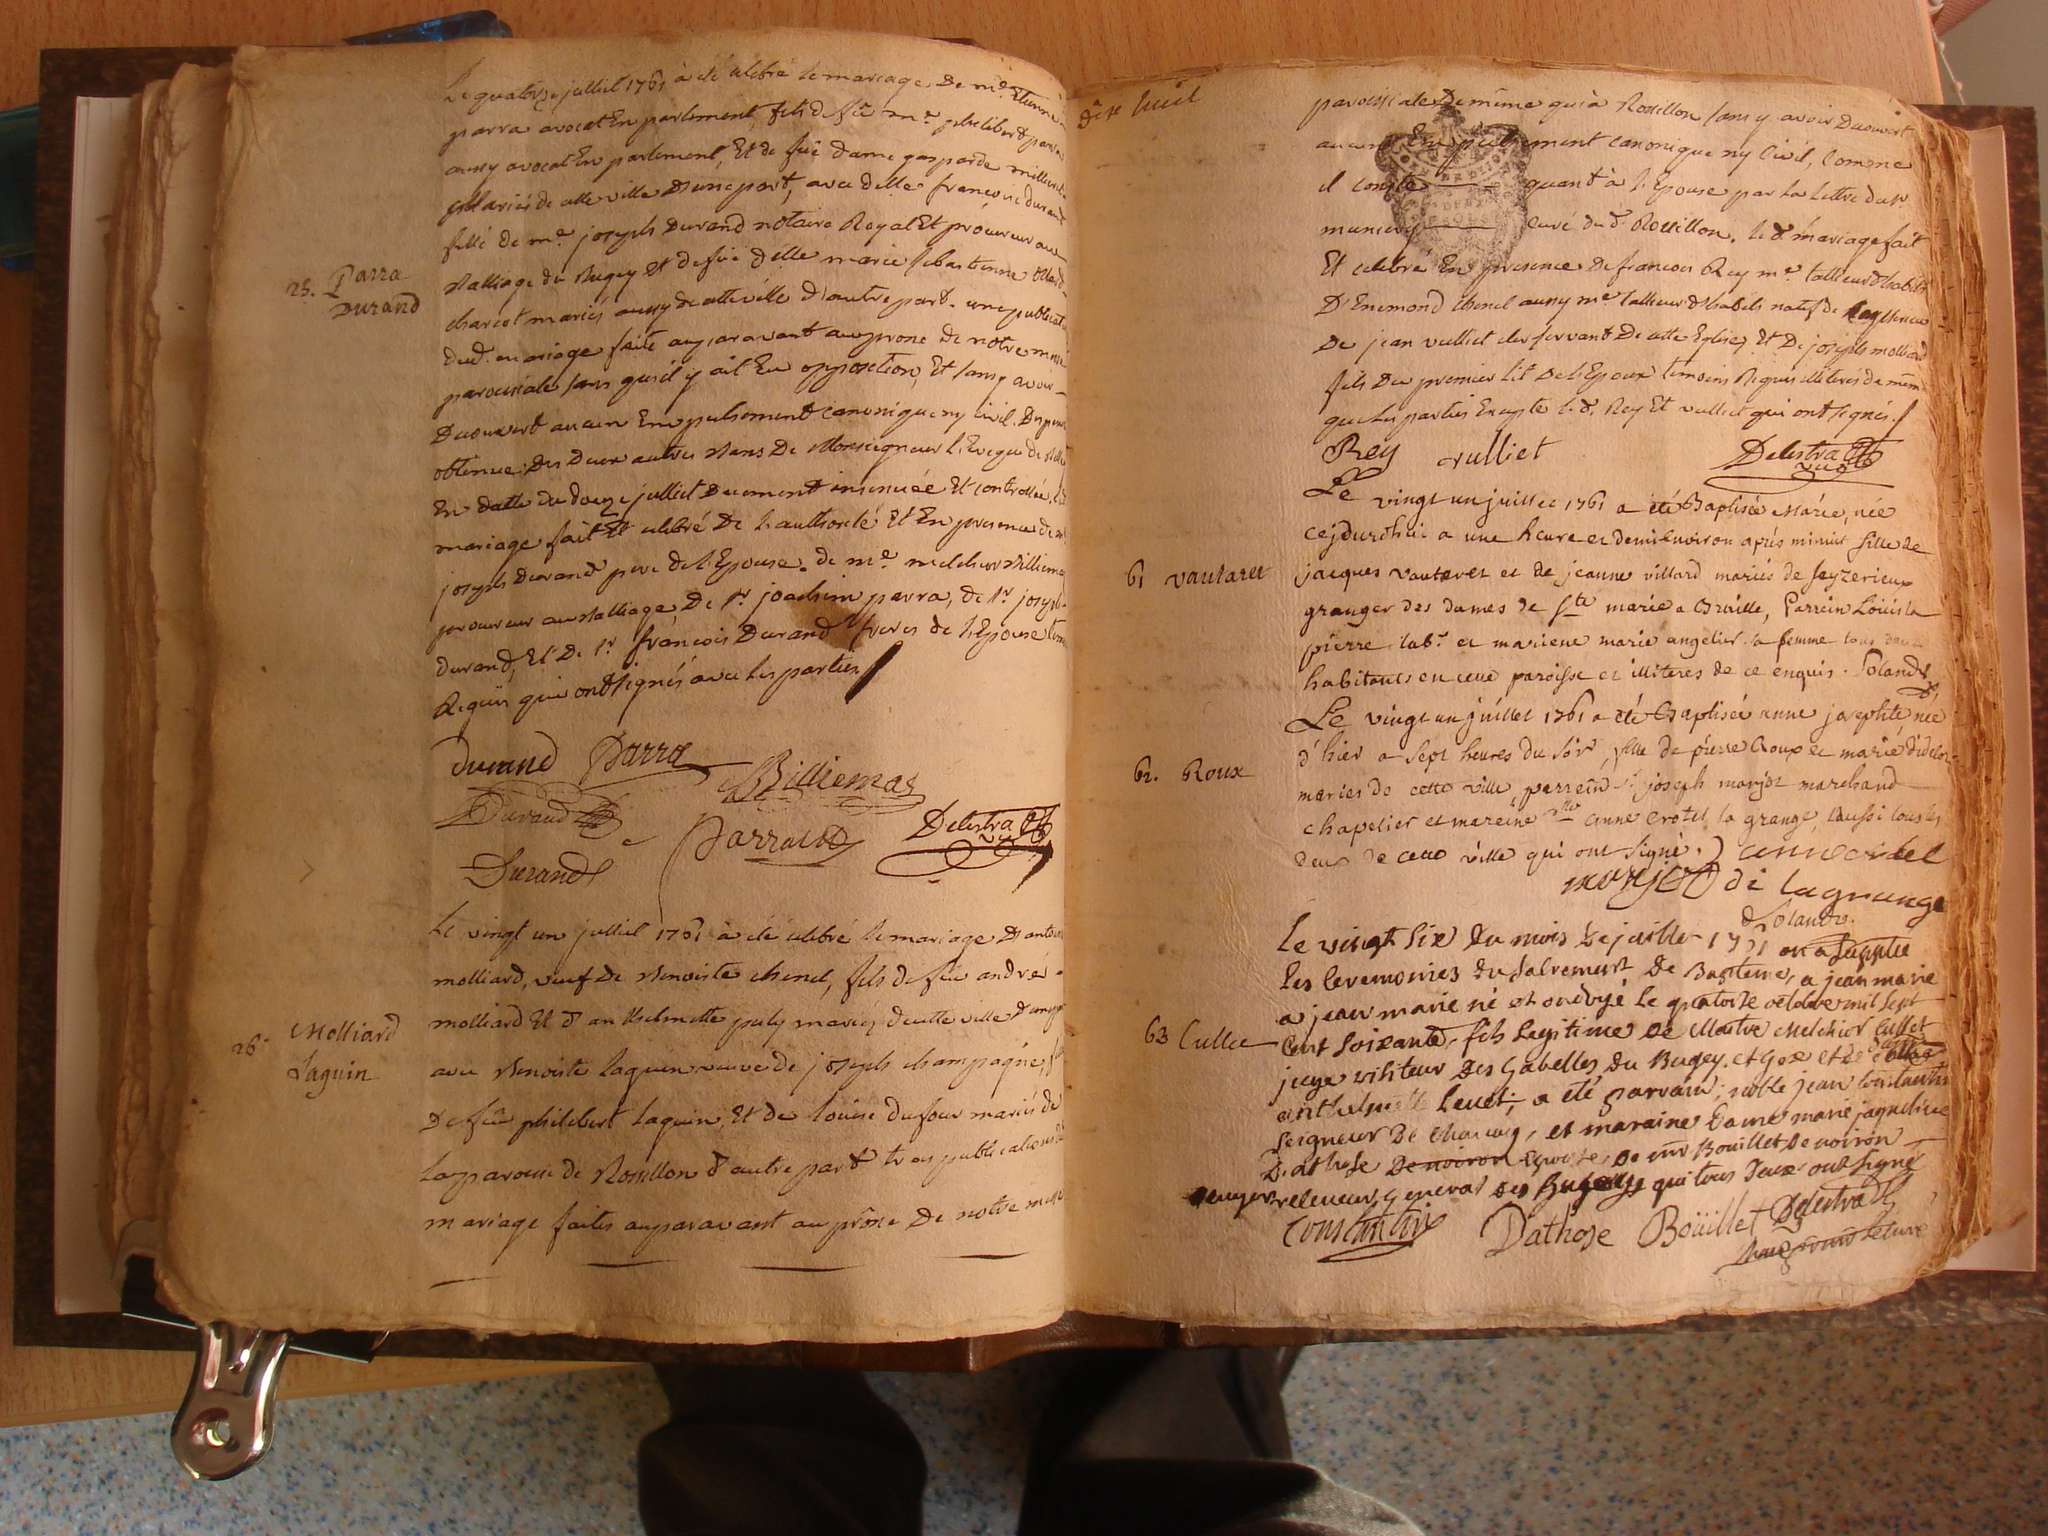 Le quatorze juillet 1761 à été celebré le mariage De me Etienne
parra avocat En parlement, fils de feu me philibert parra
aussy avocat En parlement, Et de feüe dame gasparde
mariés de cette ville D'une part, avec delle françoise durand
fille de me joseph Durand notaire Royal Et procureur au
Balliage du Bugey Et de feüe delle marie sebastienne
charcot mariés aussy de cette ville d'autre part. une publicat
dud. mariage faite auparavant au prone De notre messe
paroissiale sans qu'il y ait Eu opposition, Et sans y avoir
Decouvert aucun Empechement canonique ny civil. Dispense
obtenue Des Deux autres Bans De Monseigneur l'Eveque de
En datte du douze juillet Duement insinuée Et controllée, led
mariage fait Et celebré De l'authorité Et En presence de me
joseph Durand pere de l'Epouse. de me melchior Billiemas
procureur au Balliage De sr joachim parra, de sr joseph
durand, Et De sr françois Durand freres de l'Epouse tem
Requis qui ont signés avec les parties
25. Parra
Durand
Durand Parra Billiemas
Durand Parra Delestra
Durand
Le vingt un juillet 1761 à été celebré le mariage D'antoine
molliard, veuf de Benoiste chenel, fils de feu andré
molliard Et d'anthelmette mariés de cette ville D'une part
avec Benoiste Laguin veuve de joseph champagne,
De feu philibert Laguin, Et de Louise Dufour mariés de
la paroisse de Rossillon d'autre part trois publications
mariage faites auparavant au prône De notre messe
26. Molliard
Laguin
paroissiale De même qu'à Rossillon sans y avoir Decouvert
aucun Empechement canonique ny Civil, Comme
il conste quant à l'Epouse par la Lettre du sr
curé dud. Rossillon. le d. mariage fait
Et celebré En presence De francois Rey me tailleur d'habits
D'Enemond chenel aussy me tailleur d'habits natif de
De jean vulliet clerc servant De cette Eglise, Et De joseph molliard
fils Du premier lit De l'Epoux temoins Requis illiterés de même
que les parties Excepté led. Rey Et vulliet qui ont signés.
Rey vulliet Delestra
vic
Le vingt un juillet 1761 a été Baptisée Marie, née
cejourd'hui a une heure et demi environ après minuit fille de
jacques vautaret et de jeanne villard mariés de seyzerieux
granger des dames de ste marie a Brville, Parrein Loüis la
pierre lab.r et mareine marie angelier sa femme tous deux
habitants en cette paroisse et illiteres de ce enquis. Soland
61 vautaret
Le vingt un juillet 1761 a été Baptisée anne josephte née
d'hier a sept heures du soir, fille de pierre Roux et marie didelon
mariés de cette ville parrein sr joseph monjot marchand
chapelier et mareine dlle anne Crotel la grange aussi tous les
deux de cette ville qui ont signé. anne crotel
monjot de lagrange
Solandr.
62. Roux
Le vingt six du mois de juillet 1761 on a supplée
les ceremonies du sacrement De Bapteme, a jean marie
a jean marie né et ondoyé le quatorze octobre mil sept
cent soixante, fils legitime de Maitre Melchior Cullet
juge visiteur Des Gabelles du Bugey et Gex et de
anthelmette Leuet, a été parrain, noble jean Constantin
seigneur De Chanay, et maraine Dame marie jaqueline
D'athose De noiron Epouse De mr Bouillet De noiron
receveur General qui tous deux ont signé
63 Cullet
Constantin D'athose Boüillet Delestra